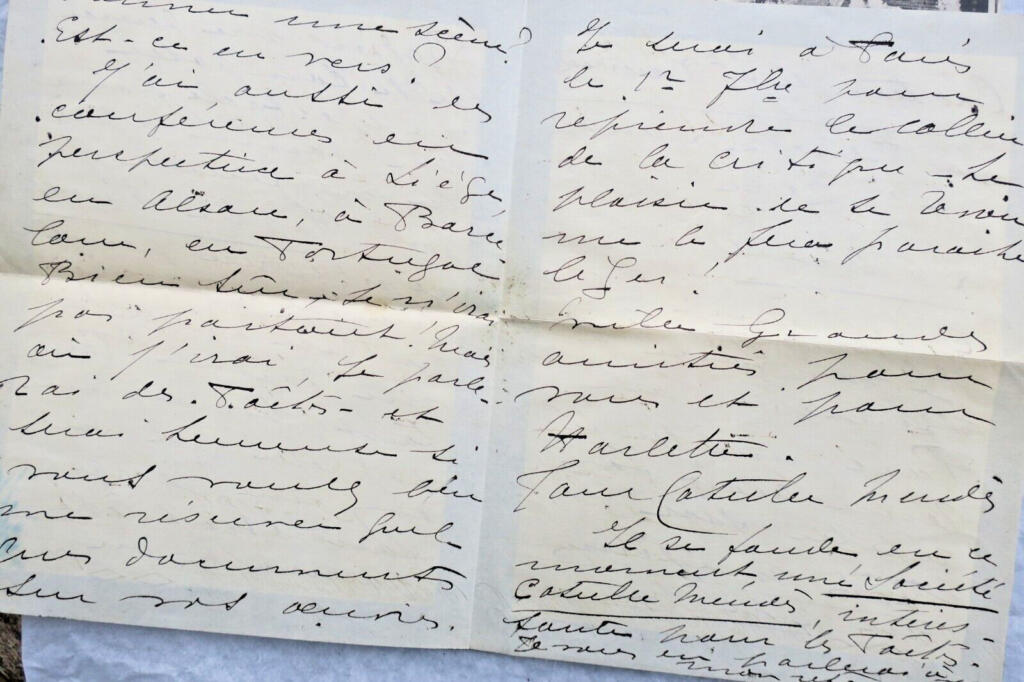 une scène?
Est-ce en vers?
J'ai aussi des
conférences en
perspective à Liége
en Alsace, à Barce-
lone, en Portugal
Bien sûr, je n'irai
pas partout! Mais
où j'irai, je parle-
rai des Poètes - et
serai heureuse si
vous voulez bien
me réserver quel
ques documents
sur vos œuvres.
Je serai à Paris
le 1er 7bre pour
reprendre le collier
de la critique - Le
plaisir de se revoir
me le fera paraître
léger!
Mille Grandes
amitiés pour
vous et pour
Harlette.
Jane Catulle Mendès
Il se fonde en ce
moment une Société
Catulle Mendès, intéres-
sante pour les Poètes.
Je vous en parlerai à
mon